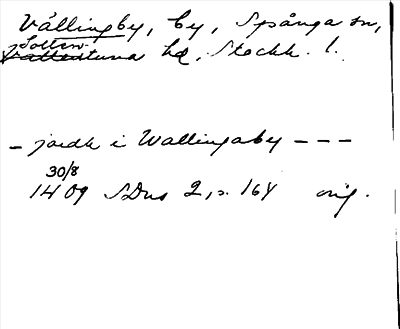 Vällingby, by, Spånga sn,
Sollen-
Vallentuna hd, Stockh. l.
- jordh i Wallingaby - - -
30/8
1409 SDns 2, s. 164 orig.